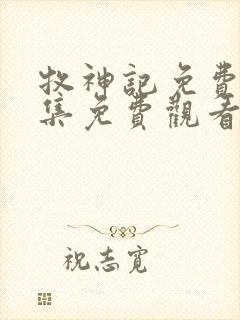 牧神記免費
集免費觀看
祝志寬